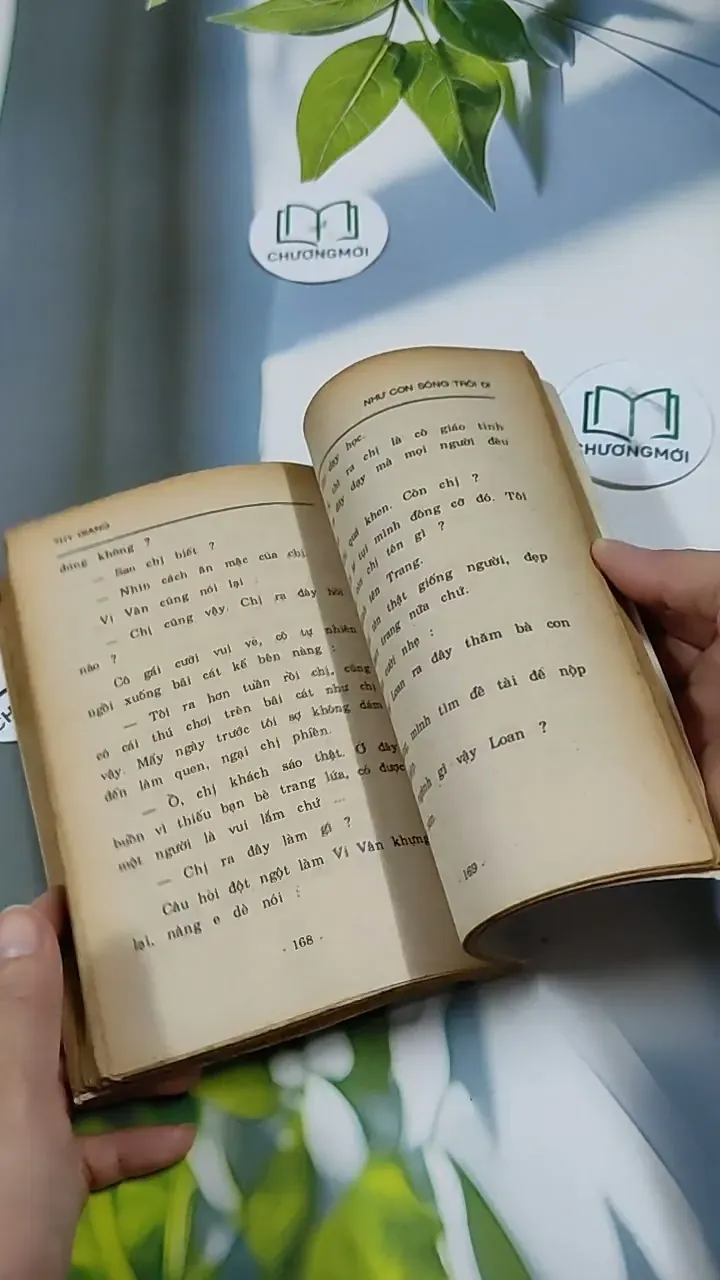 CHƯƠNGMỚI
CHƯƠNGMỚI
THY GIANG
đúng không ?
— Sao chị biết ?
— Nhìn cách ăn mặc của chị.
Vi Vân cũng nói lại
— Chị cũng vậy. Chị ra đây hồi
nào ?
Cô gái cười vui vẻ, cô tự nhiên
ngồi xuống bãi cát kế bên nàng :
— Tôi ra hơn tuần rồi chị, cũng
có cái thú chơi trên bãi cát như chị
vậy. Mấy ngày trước tôi sợ không dám
đến làm quen, ngại chị phiền.
— Ồ, chị khách sáo thật. Ở đây
buồn vì thiếu bạn bè trang lứa, có được
một người là vui lắm chứ ...
— Chị ra đây làm gì ?
Câu hỏi đột ngột làm Vi Vân khựng
lại, nàng e dè nói :
- 168 -
NHƯ CON SÔNG TRÔI ĐI
dạy học.
ra chị là cô giáo tỉnh
đây dạy mà mọi người đều
quá khen. Còn chị ?
tụi mình đông cỡ đó. Tôi
chị tên gì ?
tên Trang.
tên thật giống người, đẹp
trang nữa chứ.
cười nhẹ :
Loan ra đây thăm bà con
mình tìm đề tài để nộp
gì vậy Loan ?
- 169 -